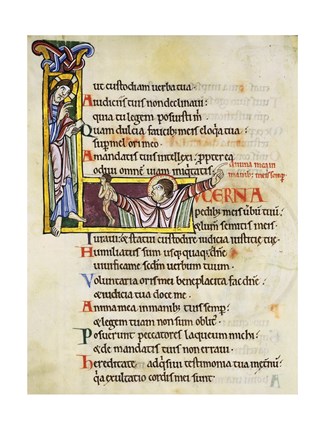 ut custodiam uerba tua
A iudiciis tuis non declinaui:
quia tu legem posuisti m̄.
Q uam dulcia faucib; meis eloq̄a tua:
sup mel ori meo.
A mandatis tuis intellexi: ꝓpterea
odiui omnē uiam iniq̄tatis.
Anima mea in
manib; meis semp̄.
LVCERNA
pedib; meis ūbū tuū:
& lum̄ semitis meis.
I uraui & statui custodire iudicia iustitiȩ tuȩ
H umiliatus sum usq̄quaq̄:
uiuifica me sc̄dm uerbum tuum.
V oluntaria oris mei beneplacita fac dn̄e:
& iudicia tua doce me.
A nima mea in manib; tuis semp̄:
& legem tuam non sum oblit'.
P osuerunt peccatores laqueum michi:
& de mandatis tuis non erraui.
H ereditate adq̄siui testimonia tua
quia exultatio cordis mei sunt